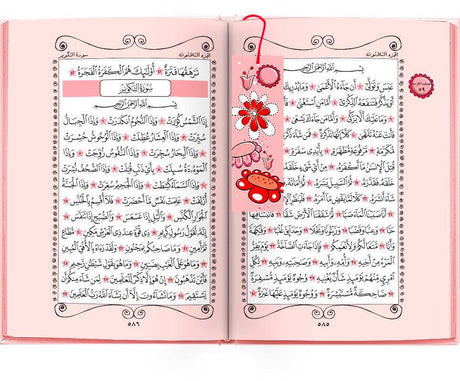 الجزء الثلاثون
بِسْمِ اللَّهِ الرَّحْمَٰنِ الرَّحِيمِ
عَبَسَ وَتَوَلَّىٰ أَن جَاءَهُ الْأَعْمَىٰ وَمَا يُدْرِيكَ
أَمَّا مَنِ اسْتَغْنَىٰ
وَمَا عَلَيْكَ أَلَّا يَزَّكَّىٰ وَأَمَّا مَن جَاءَكَ
فَأَنتَ عَنْهُ تَلَهَّىٰ كَلَّا إِنَّهَا تَذْكِرَةٌ
مُّكَرَّمَةٍ مَّرْفُوعَةٍ مُّطَهَّرَةٍ
قُتِلَ الْإِنسَانُ مَا أَكْفَرَهُ مِنْ أَيِّ شَيْءٍ خَلَقَهُ
ثُمَّ السَّبِيلَ يَسَّرَهُ ثُمَّ أَمَاتَهُ فَأَقْبَرَهُ
كَلَّا لَمَّا يَقْضِ مَا أَمَرَهُ فَلْيَنظُرِ
أَنَّا صَبَبْنَا الْمَاءَ صَبًّا ثُمَّ شَقَقْنَا الْأَرْضَ شَقًّا فَأَنبَتْنَا فِيهَا
حَبًّا وَعِنَبًا وَقَضْبًا وَزَيْتُونًا وَنَخْلًا وَحَدَائِقَ غُلْبًا
وَفَاكِهَةً وَأَبًّا مَّتَاعًا لَّكُمْ وَلِأَنْعَامِكُمْ فَإِذَا جَاءَتِ الصَّاخَّةُ
يَوْمَ يَفِرُّ الْمَرْءُ مِنْ أَخِيهِ وَأُمِّهِ وَأَبِيهِ وَصَاحِبَتِهِ وَبَنِيهِ لِكُلِّ
امْرِئٍ مِّنْهُمْ يَوْمَئِذٍ شَأْنٌ يُغْنِيهِ وُجُوهٌ يَوْمَئِذٍ مُّسْفِرَةٌ
ضَاحِكَةٌ مُّسْتَبْشِرَةٌ وَوُجُوهٌ يَوْمَئِذٍ عَلَيْهَا غَبَرَةٌ
٥٨٥
الجزء الثلاثون
سورة التكوير
تَرْهَقُهَا قَتَرَةٌ أُولَٰئِكَ هُمُ الْكَفَرَةُ الْفَجَرَةُ
سُورَةُ التَّكْوِيرِ
بِسْمِ اللَّهِ الرَّحْمَٰنِ الرَّحِيمِ
إِذَا الشَّمْسُ كُوِّرَتْ وَإِذَا النُّجُومُ انكَدَرَتْ وَإِذَا الْجِبَالُ
سُيِّرَتْ وَإِذَا الْعِشَارُ عُطِّلَتْ وَإِذَا الْوُحُوشُ حُشِرَتْ
وَإِذَا الْبِحَارُ سُجِّرَتْ وَإِذَا النُّفُوسُ زُوِّجَتْ وَإِذَا
الْمَوْءُودَةُ سُئِلَتْ بِأَيِّ ذَنبٍ قُتِلَتْ وَإِذَا الصُّحُفُ نُشِرَتْ
وَإِذَا السَّمَاءُ كُشِطَتْ وَإِذَا الْجَحِيمُ سُعِّرَتْ وَإِذَا
الْجَنَّةُ أُزْلِفَتْ عَلِمَتْ نَفْسٌ مَّا أَحْضَرَتْ فَلَا أُقْسِمُ بِالْخُنَّسِ
الْجَوَارِ الْكُنَّسِ وَاللَّيْلِ إِذَا عَسْعَسَ وَالصُّبْحِ إِذَا تَنَفَّسَ
إِنَّهُ لَقَوْلُ رَسُولٍ كَرِيمٍ ذِي قُوَّةٍ عِندَ ذِي الْعَرْشِ مَكِينٍ
مُّطَاعٍ ثَمَّ أَمِينٍ وَمَا صَاحِبُكُم بِمَجْنُونٍ وَلَقَدْ رَآهُ بِالْأُفُقِ الْمُبِينِ
وَمَا هُوَ عَلَى الْغَيْبِ بِضَنِينٍ وَمَا هُوَ بِقَوْلِ شَيْطَانٍ رَّجِيمٍ
فَأَيْنَ تَذْهَبُونَ إِنْ هُوَ إِلَّا ذِكْرٌ لِّلْعَالَمِينَ لِمَن شَاءَ مِنكُمْ أَن
يَسْتَقِيمَ وَمَا تَشَاءُونَ إِلَّا أَن يَشَاءَ اللَّهُ رَبُّ الْعَالَمِينَ
٥٨٦